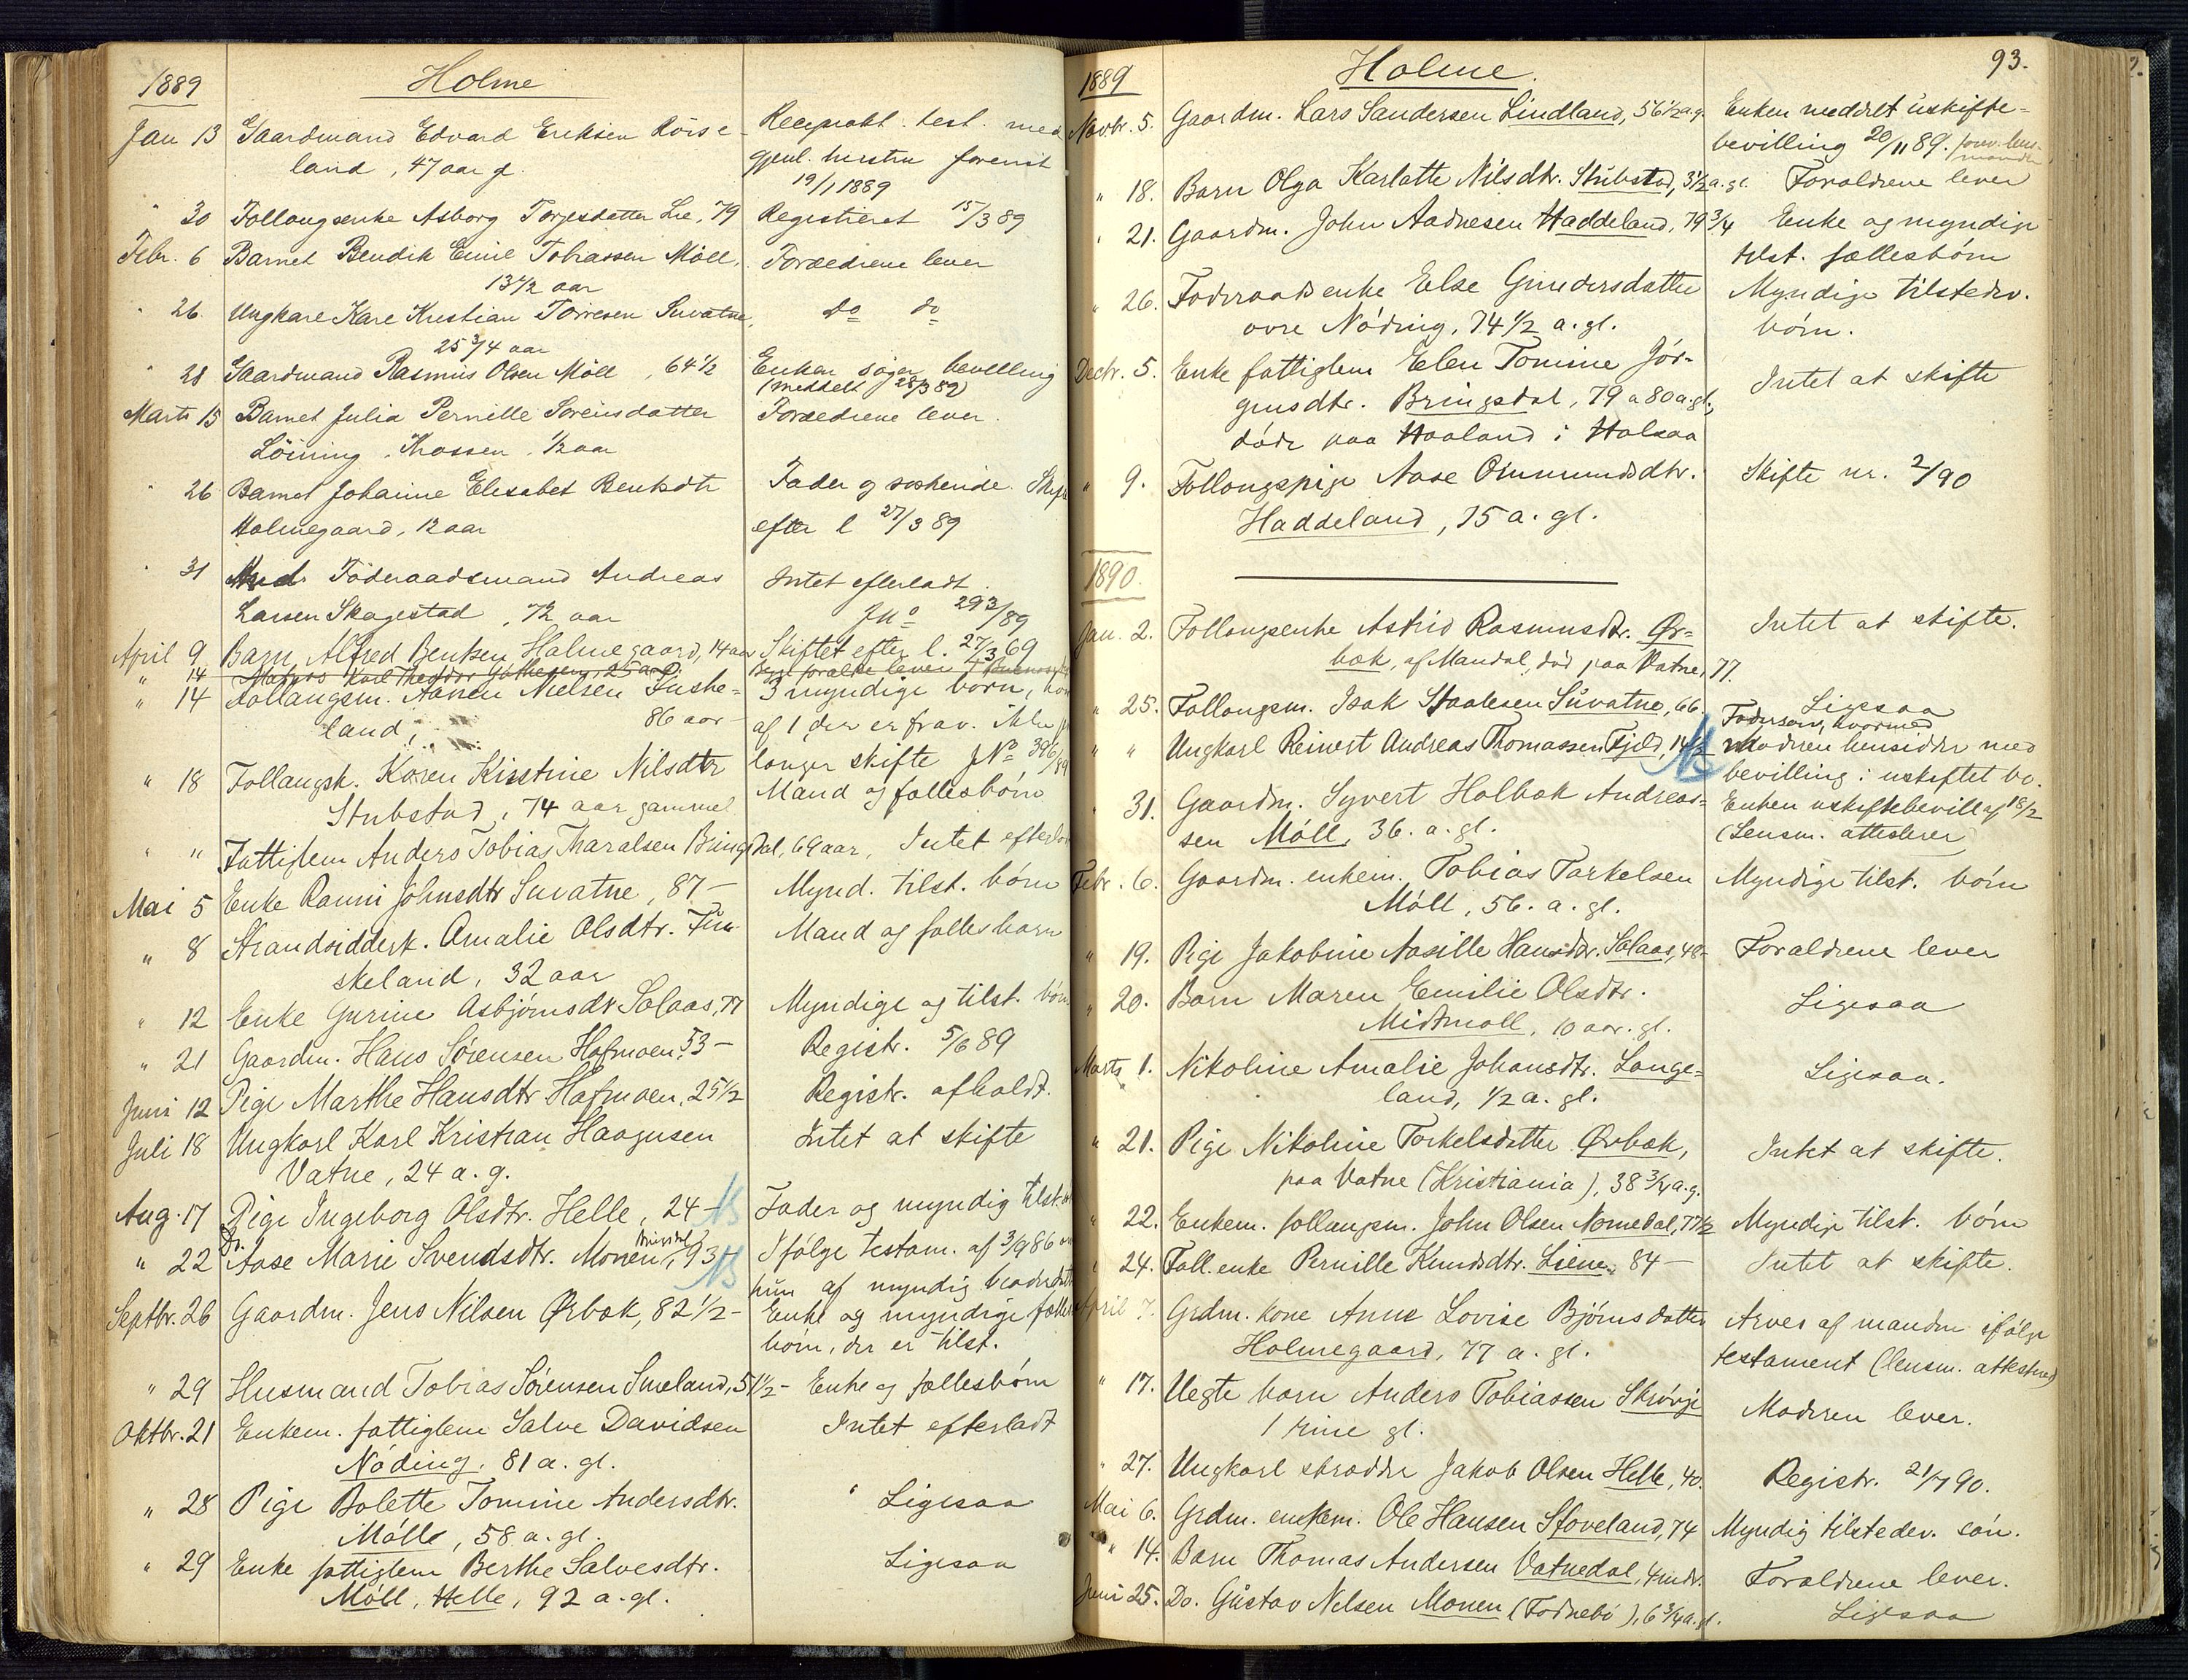 1889 Holme
Jan 13 Gaardmand Edvard Eriksen Röise- Reciprokt. test. med
land, 47 aar g. gjenl. hustru forevist
19/1 1889
" 30 Follougsenke Asborg Torjesdatter Lie, 79 Registreret 15/3 89
Febr. 6 Barnet Bendik Emil Tobiassen Möll, Forældrene lever
13 1/2 aar
" 26 Ungkare Kare Kristian Torresen Suvatne, do do
25 3/4 aar
" 28 Gaardmand Rasmus Olsen Möll, 64 1/2 Enken söger bevilling
(meddelt 28/3 89)
Marts 15 Barnet Julia Pernille Sorensdatter Forældrene lever
Löining, Krossen, 1/2 aar
" 26 Barnet Johanne Elisabet Bentsdtr Fader og søskende. Skifte
Holmegaard, 12 aar efter l 27/3 89
" 31 Föderaadsmand Andreas Intet efterladt.
Larsen Skagestad, 72 aar JNo 293/89
April 9 Barn Alfred Bentsen Holmegaard, 14 aar Skiftet efter l. 27/3 69
" 14 Matros Karl Theodor 25 a. g. forældre lever
" 14 Follaugsm. Aanen Nielsen Finske- 3 myndige børn,
land, 86 aar af 1 der er frav. ikke
langer skifte JNo 396/89
" 18 Follaugsk. Karen Kirstine Nilsdtr Mand og fællesbørn
Stubstad, 74 aar gammel
" " Fattiglem Anders Tobias Tharalsen Bringsdal, 69 aar, Intet efterladt
Mai 5 Enke Ranni Johnsdtr Suvatne, 87 – Mynd. tilst. børn
" 8 Strandsidderk. Amalie Olsdtr. Fin- Mand og fællesbarn
skeland, 32 aar
" 12 Enke Gurine Asbjørnsdtr Solaas, 77 Myndige og tilst. børn
" 21 Gaardm. Hans Sörensen Hofmoen, 53 – Registr. 5/6 89
Juni 12 Pige Marthe Hansdtr Hofmoen, 25 1/2 Registr. afholdt.
Juli 18 Ungkarl Karl Kristian Haagensen Intet at skifte
Vatne, 24 a. g.
Aug. 17 Pige Ingeborg Olsdtr. Helle, 24 – Fader og myndig tilst.
" 22 Do. Aase Marie Svendsdtr. Monen, 93 Ifølge testam. af 3/9 86
hun af myndig
Septbr. 26 Gaardm. Jens Nilsen Ørbæk, 82 1/2 – Enke og myndige fælles
børn, der er tilst.
" 29 Husmand Tobias Sörensen Smeland, 51 1/2 – Enke og fællesbørn
Oktbr. 21 Enkem. fattiglem Salve Davidsen Intet efterladt
Nøding, 81 a. gl.
" 28 Pige Bolette Tomine Andersdtr. Ligesaa
Mölle, 58 a. gl.
" 29 Enke fattiglem Berthe Salvesdtr. Ligesaa
Möll, Helle, 92 a. gl.
93.
1889 Holme.
Novbr. 5. Gaardm. Lars Sandersen Lindland, 56 1/2 a. g. Enken meddelt uskifte-
bevilling 20/11 89.
" 18. Barn Olga Karlotte Nilsdtr. Stubstad, 3 1/2 a. gl. Forældrene lever
" 21. Gaardm. John Aadnesen Haddeland, 79 3/4 Enke og myndige
tilst. fællesbørn
" 26. Föderaadsenke Else Gundersdatter Myndige tilstedev.
øvre Nöding, 74 1/2 a. gl. børn.
Decbr. 5. Enke fattiglem Elen Tomine Jör- Intet at skifte
gensdtr. Bringsdal, 79 a 80 a. gl.,
døde paa Haaland i Halsaa
" 9. Follougspige Aase Ommundsdtr. Skifte nr. 2/90
Haddeland, 75 a. gl.
1890.
Jan. 2. Follougsenke Astrid Rasmusdtr. Ør- Intet at skifte.
bæk, af Mandal, død paa Vatne, 77.
" 25. Follougsm. Isak Staalesen Suvatne, 66. Ligesaa
" " Ungkarl Reinert Andreas Thomassen Fjeld, 14 1/2 Faderarv, hvormed
modren hensidder med
bevilling i uskiftet bo.
" 31. Gaardm. Syvert Holbæk Andreas- Enken uskiftebevill af 18/2
sen Möll, 36. a. gl. (Lensm. attesterer)
Febr. 6. Gaardm. enkem. Tobias Torkelsen Myndige tilst. børn
Möll, 56. a. gl.
" 19. Pige Jakobine Aasille Hansdtr. Solaas, 48 – Forældrene lever
" 20. Barn Maren Emilie Olsdtr. Ligesaa
Midtmoll, 10 aar. gl.
Marts 1. Nikoline Amalie Johansdtr. Lange- Ligesaa.
land, 1/2 a. gl.
" 21. Pige Nikoline Torkelsdatter Ørbæk, Intet at skifte.
paa Vatne (Kristiania), 38 3/4 a. g.
" 22. Enkem. follaugsm. John Olsen Nomedal, 77 1/2 Myndige tilst. børn
" 24. Foll. enke Pernille Knudsdtr. Liene, 84 – Intet at skifte.
April 7. Grdm. kone Anne Lovise Bjørnsdatter Arves af manden ifølge
Holmegaard, 77 a. gl. testament (lensm. attesterer)
" 17. Uegte barn Anders Tobiassen Skrövje Moderen lever.
1 time gl.
" 27. Ungkarl skrædder Jakob Olsen Helle, 40. Registr. 21/7 90.
Mai 6. Grdm. enkem. Ole Hansen Stoveland, 74 Myndig tilstedev. søn.
" 14. Barn Thomas Andersen Vatnedal, 4 mdr. Forældrene lever.
Juni 25. Do. Gustav Nilsen Monen (Fodnebø), 6 3/4 a. gl. Ligesaa